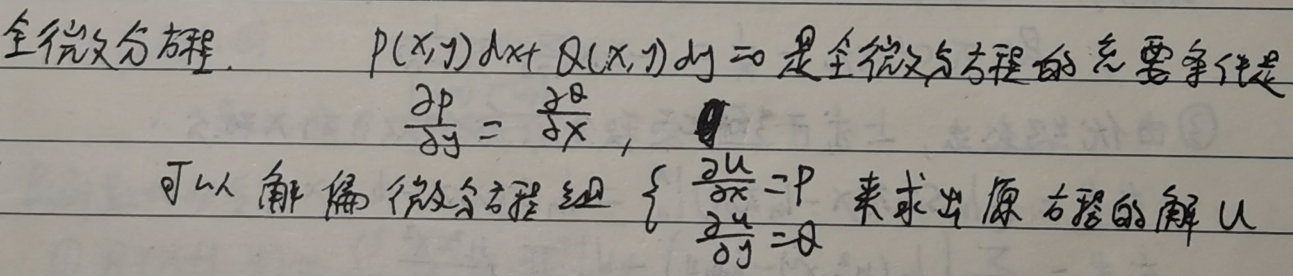 全微分方程. P(x,y)dx+Q(x,y)dy=0是全微分方程的充要条件是
∂P/∂y = ∂Q/∂x,
可以解偏微分方程组 { ∂u/∂x=P ∂u/∂y=Q 来求出原方程的解u